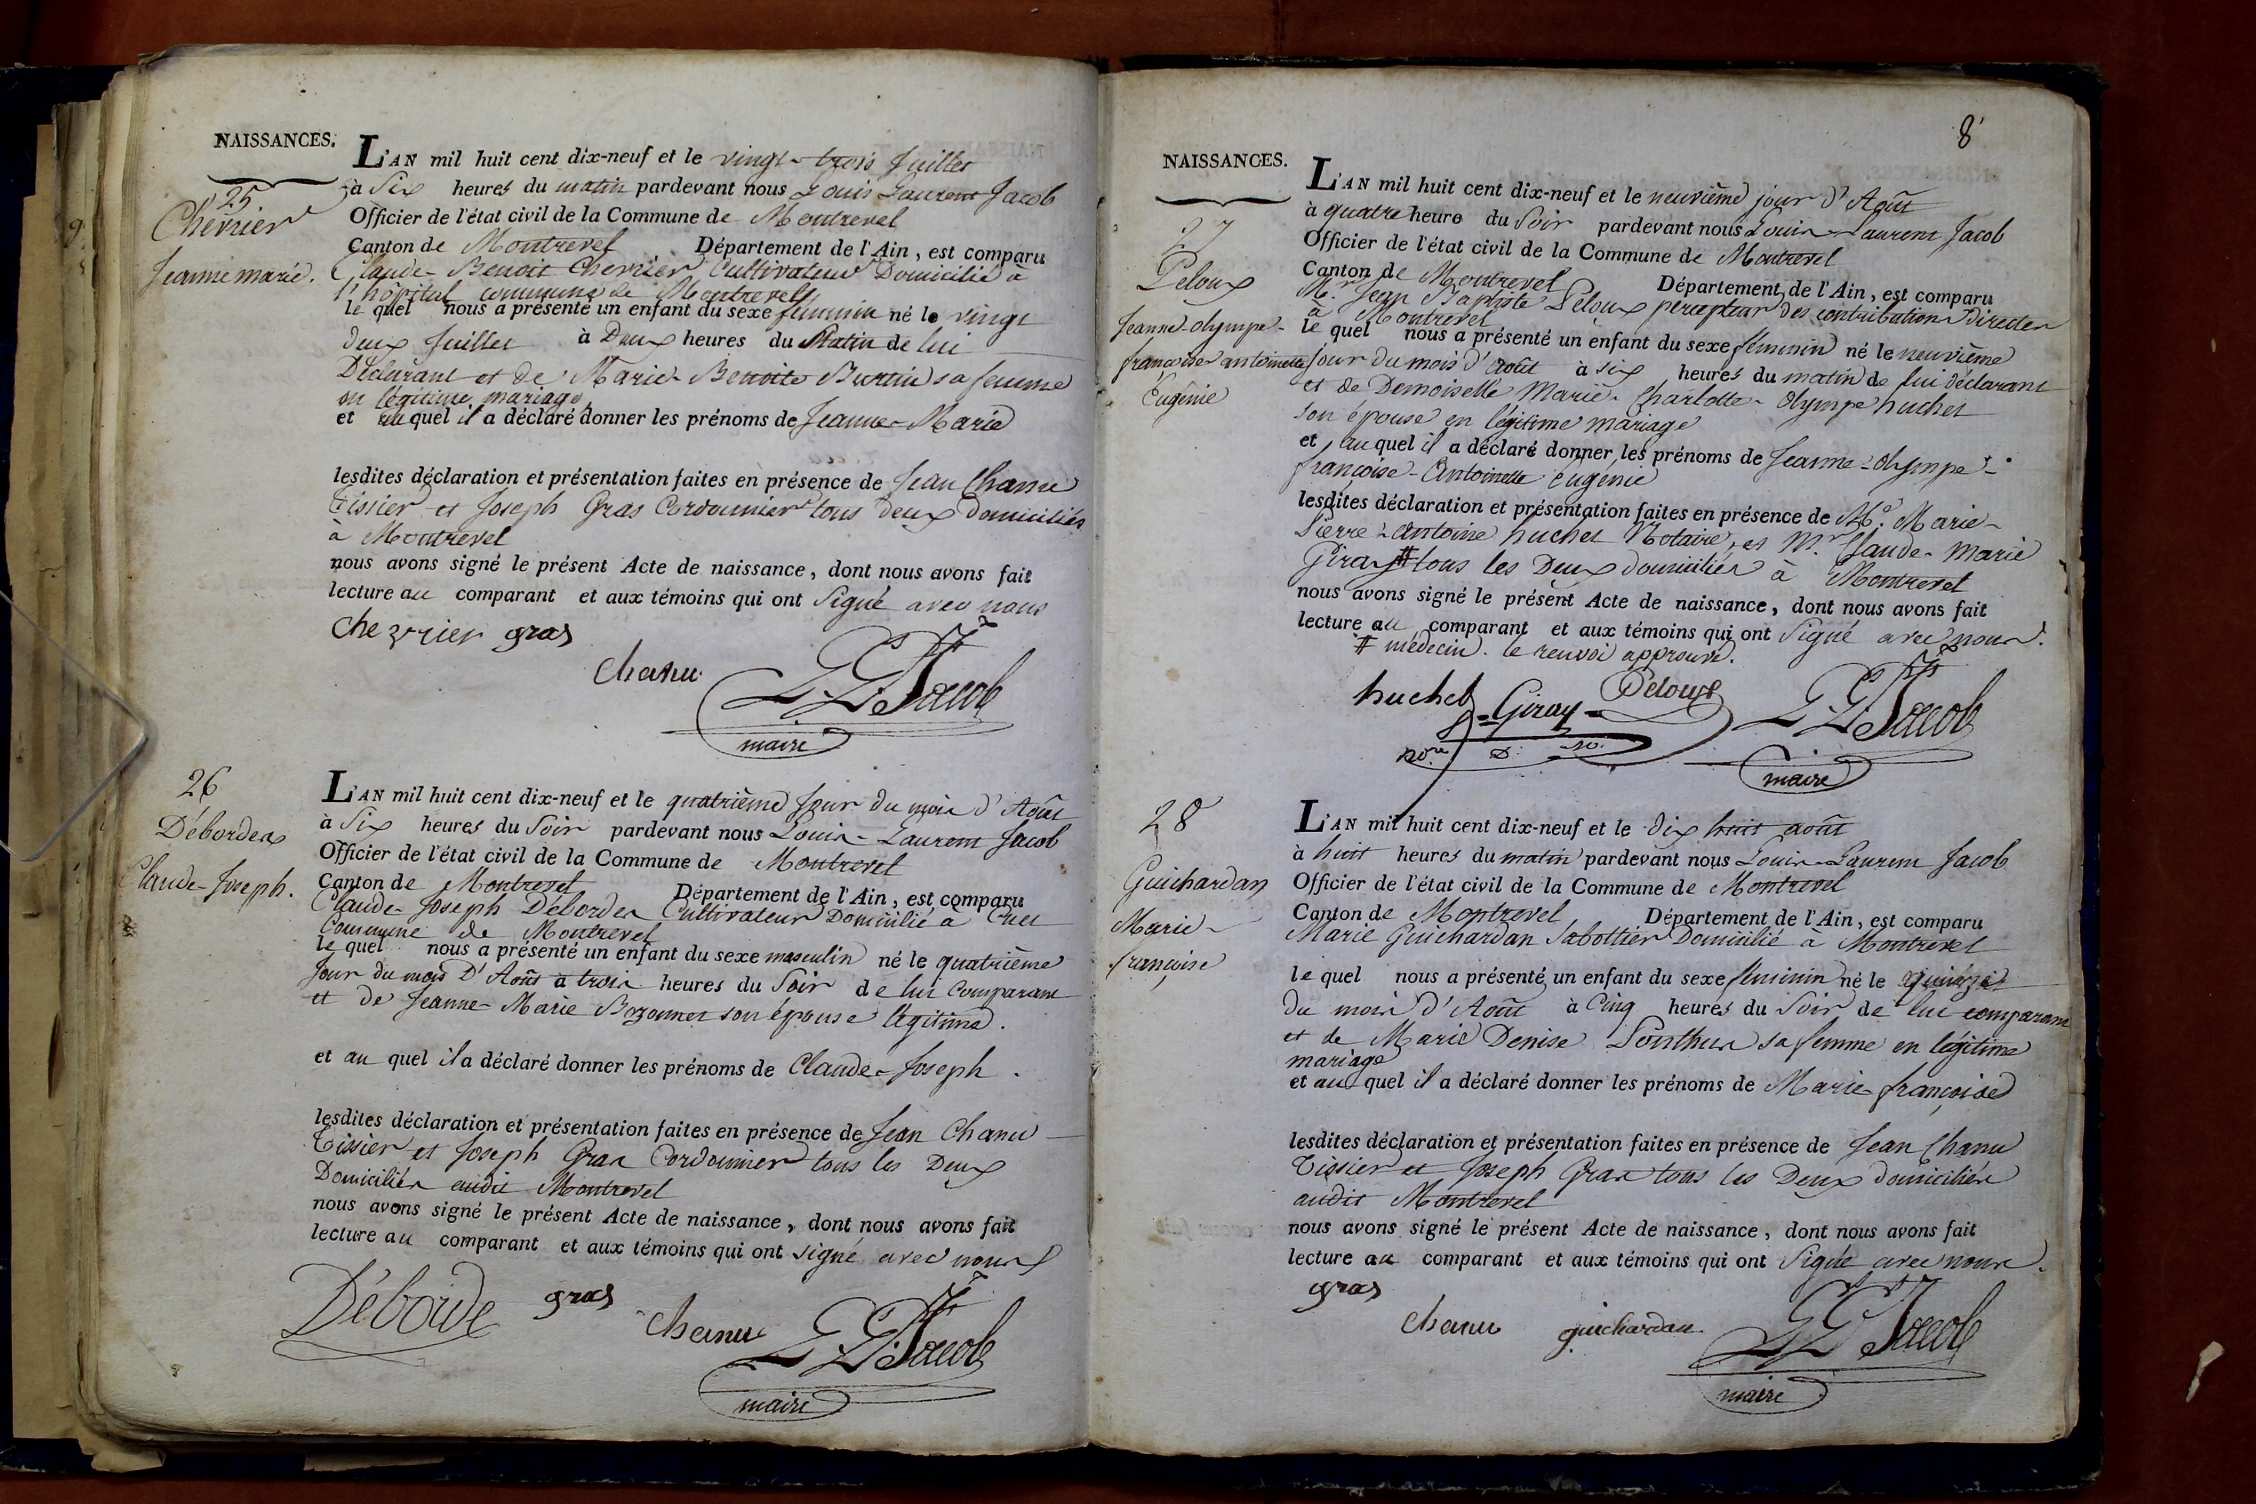 NAISSANCES.
25
Chevrier
Jeanne marie.
L'AN mil huit cent dix-neuf et le vingt-trois Juillet
à Six heures du matin pardevant nous Louis Laurent Jacob
Officier de l'état civil de la Commune de Montrevel
Canton de Montrevel Département de l'Ain, est comparu
Claude-Benoit Chevrier Cultivateur Domicilié à
l'hôpital commune de Montrevel
le quel nous a présenté un enfant du sexe féminin né le vingt
deux Juillet à Deux heures du Matin de lui
Déclarant et de Marie-Benoite Burtin sa femme
en légitime mariage,
et auquel il a déclaré donner les prénoms de Jeanne-Marie
lesdites déclaration et présentation faites en présence de Jean Chanu
Tissier et Joseph Gras Cordonnier tous deux domiciliés
à Montrevel
nous avons signé le présent Acte de naissance, dont nous avons fait
lecture au comparant et aux témoins qui ont Signé avec nous
chevrier gras
chanu L. L. Jacob
maire
26
Débordes
Claude-Joseph.
L'AN mil huit cent dix-neuf et le quatrième Jour du mois d'Août
à Six heures du Soir pardevant nous Louis-Laurent Jacob
Officier de l'état civil de la Commune de Montrevel
Canton de Montrevel Département de l'Ain, est comparu
Claude-Joseph Débordes Cultivateur Domicilié à Cuet
Commune de Montrevel
le quel nous a présenté un enfant du sexe masculin né le quatrième
Jour du mois D'Août à trois heures du Soir de lui Comparant
et de Jeanne-Marie Bozonnet son épouse légitime.
et au quel il a déclaré donner les prénoms de Claude-Joseph.
lesdites déclaration et présentation faites en présence de Jean Chanu
Tissier et Joseph Gras Cordonnier tous les Deux
Domiciliés audit Montrevel
nous avons signé le présent Acte de naissance, dont nous avons fait
lecture au comparant et aux témoins qui ont signé avec nous
Déborde gras
chanu L. L. Jacob
maire
8
NAISSANCES.
27
Peloux
Jeanne-olympe-
françoise antoinette
Eugénie
L'AN mil huit cent dix-neuf et le neuvième jour d'Août
à quatre heure du Soir pardevant nous Louis-Laurent Jacob
Officier de l'état civil de la Commune de Montrevel
Canton de Montrevel Département de l'Ain, est comparu
Mr. Jean Baptiste Peloux percepteur des contributions Directes
à Montrevel
le quel nous a présenté un enfant du sexe féminin né le neuvième
jour du mois d'Août à six heures du matin de lui déclarant
et de Demoiselle Marie-Charlotte-Olympe huchet
son épouse en légitime mariage
et au quel il a déclaré donner les prénoms de Jeanne-olympe-
françoise-Antoinette Eugénie
lesdites déclaration et présentation faites en présence de Me. Marie-
Pierre-Antoine huchet Notaire, et Mr. Claude-Marie
Giray # tous les Deux domiciliés à Montrevel
nous avons signé le présent Acte de naissance, dont nous avons fait
lecture au comparant et aux témoins qui ont Signé avec nous.
# médecin. le renvoi approuvé.
huchet Giray Peloux L. L. Jacob
maire
28
Guichardan
Marie-
françoise
L'AN mil huit cent dix-neuf et le dix huit août
à huit heures du matin pardevant nous Louis-Laurent Jacob
Officier de l'état civil de la Commune de Montrevel
Canton de Montrevel Département de l'Ain, est comparu
Marie Guichardan Sabottier Domicilié à Montrevel
le quel nous a présenté un enfant du sexe féminin né le quinze
du mois d'Août à Cinq heures du Soir de lui comparant
et de Marie Denise Ponthus sa femme en légitime
mariage
et au quel il a déclaré donner les prénoms de Marie-françoise
lesdites déclaration et présentation faites en présence de Jean Chanu
Tissier et Joseph Gras tous les Deux domiciliés
audit Montrevel
nous avons signé le présent Acte de naissance, dont nous avons fait
lecture au comparant et aux témoins qui ont Signé avec nous.
gras
chanu guichardan L. L. Jacob
maire